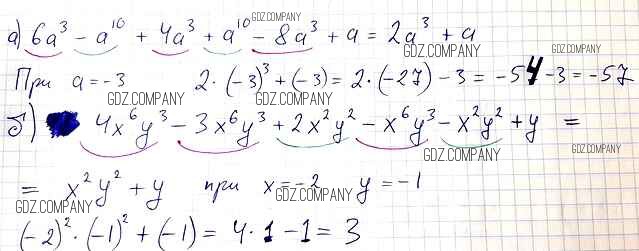 а) 6a³ - a¹⁰ + 4a³ + a¹⁰ - 8a³ + a = 2a³ + a
GDZ.COMPANY
GDZ.COMPANY GDZ.COMPANY
При a = -3 2·(-3)³ + (-3) = 2·(-27) - 3 = -54 - 3 = -57
GDZ.COMPANY GDZ.COMPANY
б) 4x⁶y³ - 3x⁶y³ + 2x²y² - x⁶y³ - x²y² + y =
GDZ.COMPANY GDZ.COMPANY
= x²y² + y при x = -2 y = -1
GDZ.COMPANY GDZ.COMPANY
(-2)²·(-1)² + (-1) = 4·1 - 1 = 3